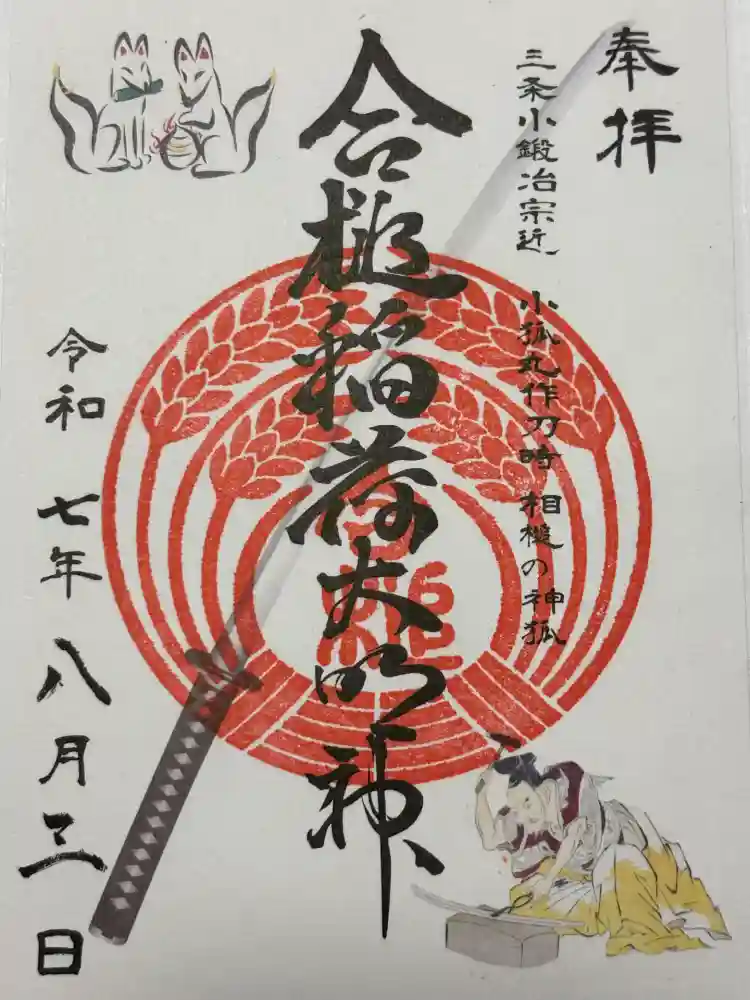 奉拝
三条小鍛冶宗近 小狐丸作刀時 相槌の神狐
合槌稲荷大明神
令和 七年 八月 三日